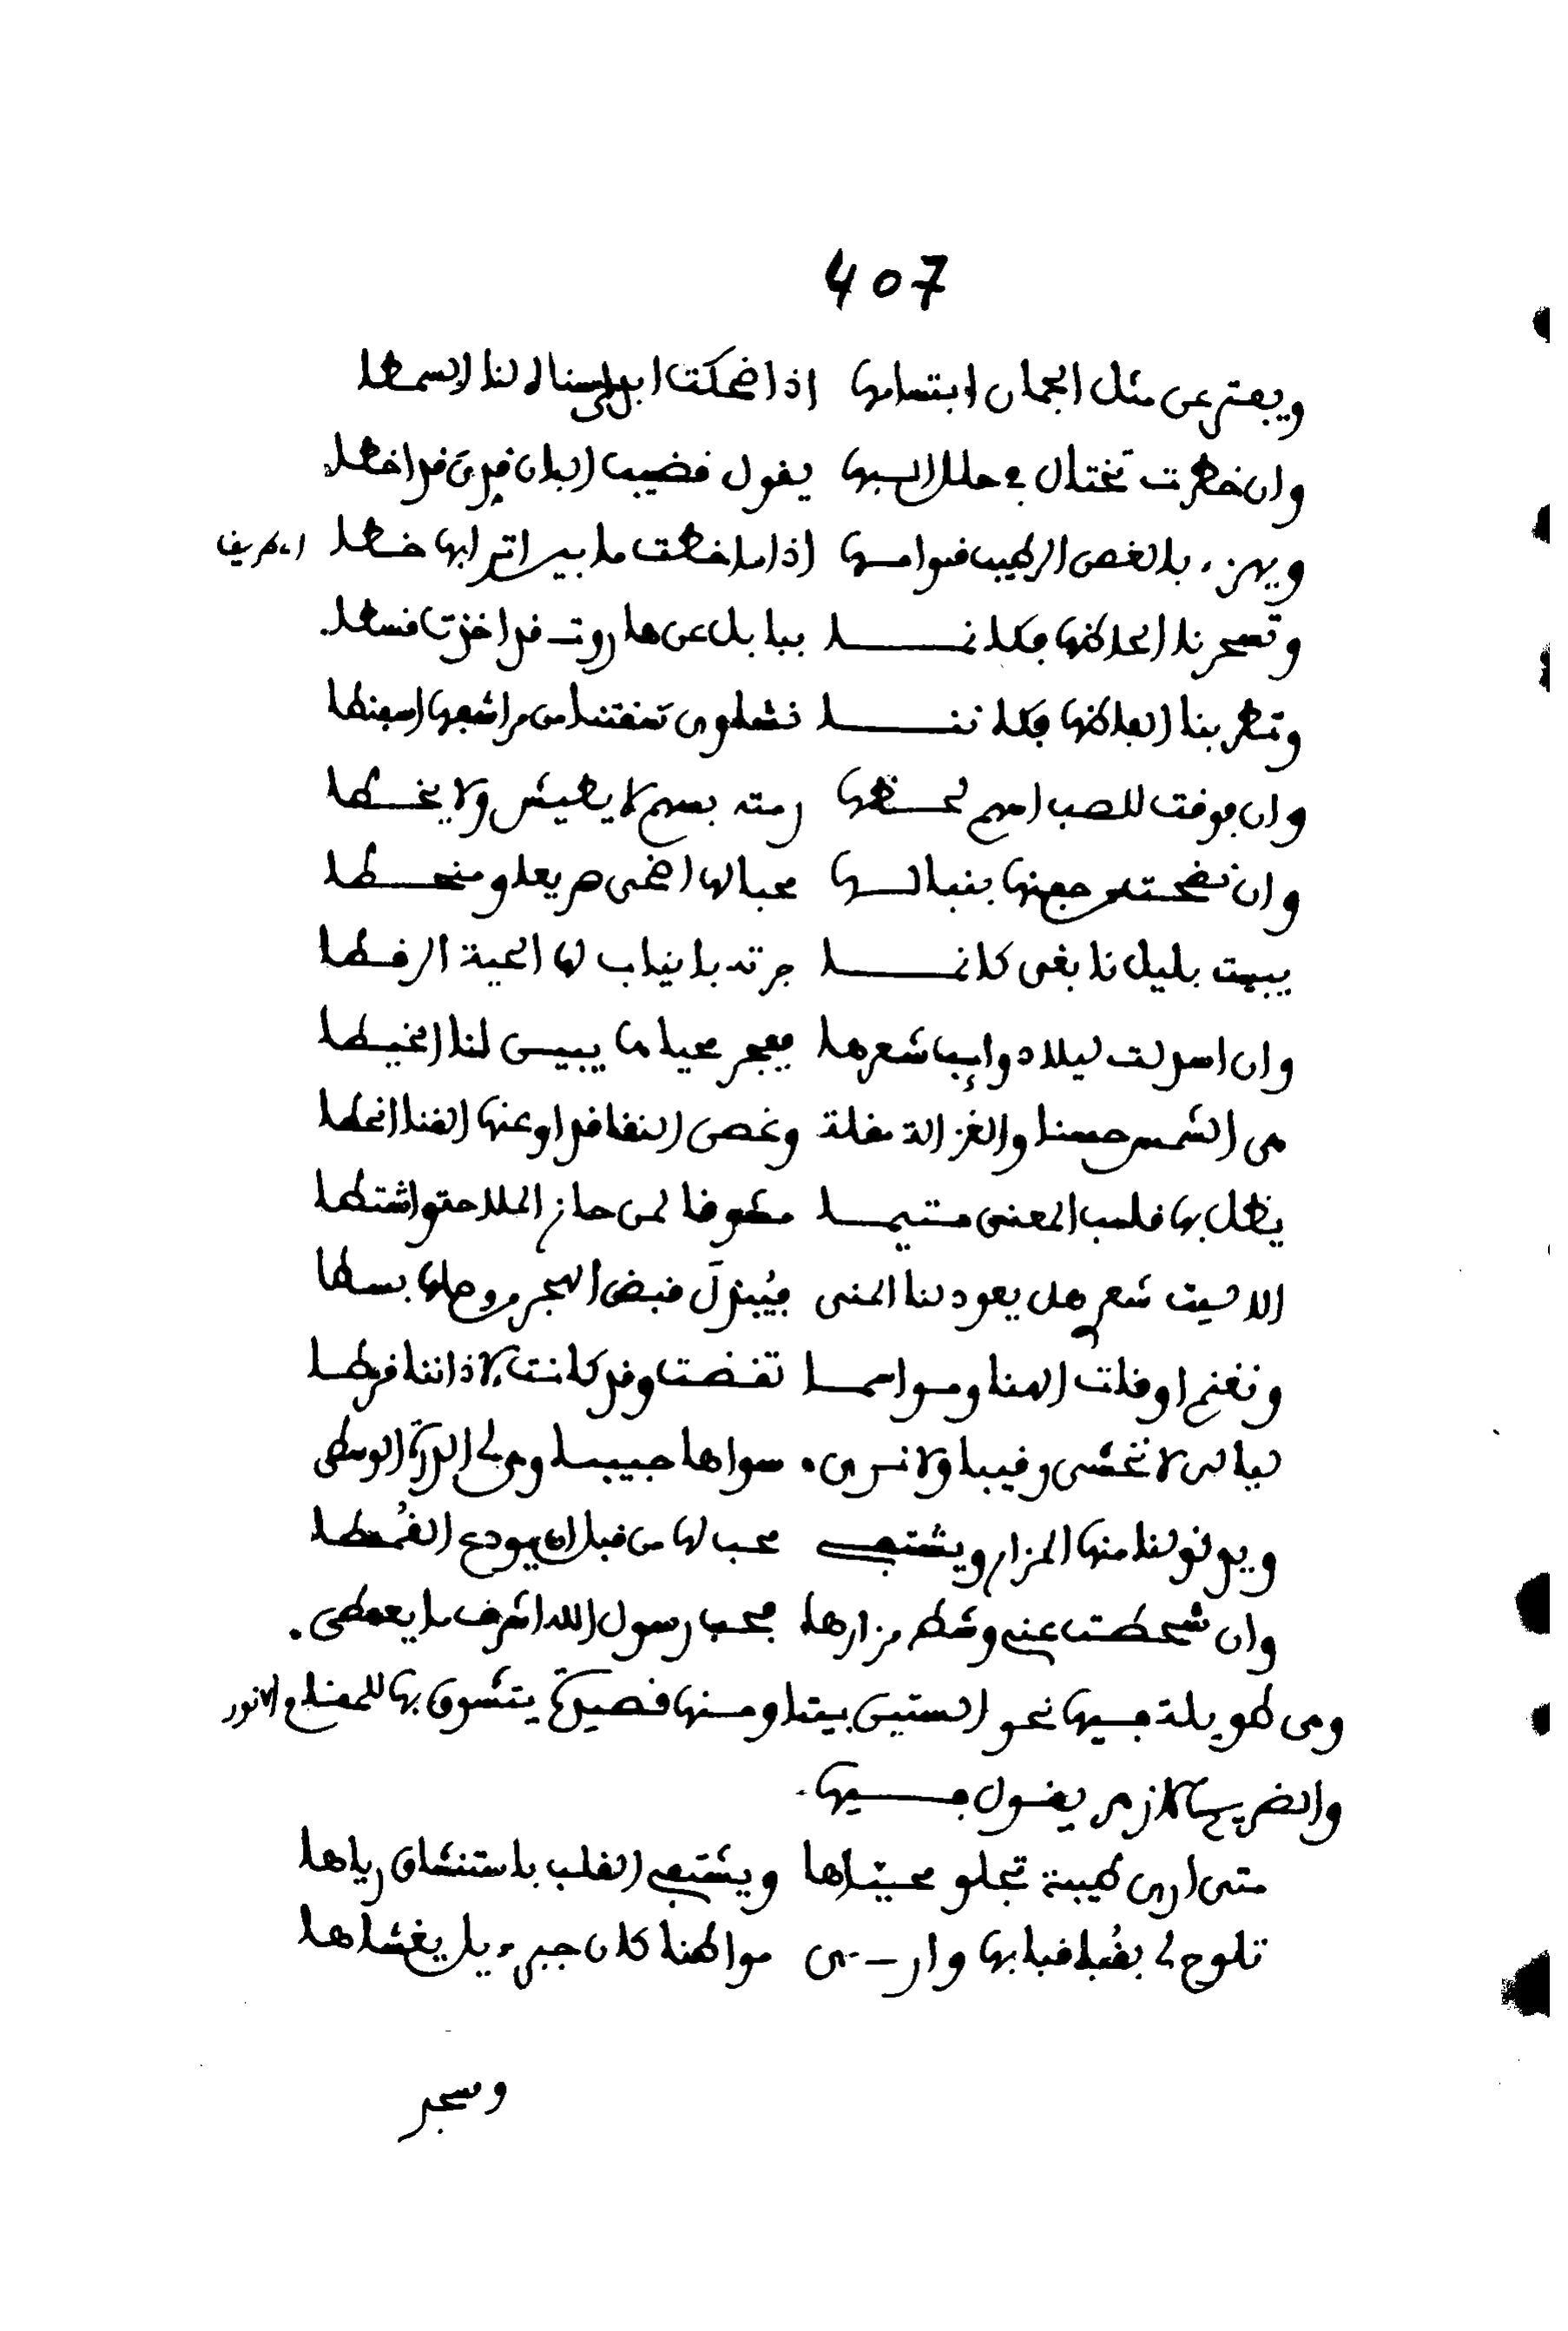 407
ويفتر عن مثل الجمان ابتسامها اذا ضحكت ابدى سناه لنا السمطا
وان خطرت تختال في حلل البها يقول قضيب البان قدي قد اخطا
ويهزء بالغصن الرطيب قوامها اذا ما خطت ما بين اترابها خطا
وتسحرنا الحاظها فكانما ببابل عن هاروت قد اخذت قسطا
وتطربنا الفاظها فكاننا نشاوى سقتنا من مراشفها اسفنطا
وان فوقت للصب اسهم لحظها رمته بسهم لا يطيش ولا يخطا
وان نضحته من جفنها بنبالها محبا لها اضحى صريعا ومنحطا
يبيت بليل نابغي كانما فرته بانياب لها الحية الرقطا
وان اسدلت ليلا ذوائب شعرها ففجر محياها يبين لنا الخيطا
هي الشمس حسنا والغزالة مقلة وغصن النقا قدا وعنها القنا انحطا
يظل بها قلب المعنى متيما مطوقا لمن حاز الملاحة واشتطا
الا ليت شعري هل يعود لنا المنى فيبدل قبض الهجر من وصلها بسطا
ونغنم اوقات الهنا ومواسما تقضت وقد كانت لاذاننا قرطا
ليالي لا نخشى رقيبا ولا نرى سواها حبيبا وهي الدرة الوسطى
ويدنو لنا منها المزار ويشتفي محب لها من قبل ان يودع القمطا
وان شحطت عني وشط مزارها فحب رسول الله اشرف ما يعطى
وهي طويلة فيها نحو الستين بيتا ومنها قصيدة يتشوق بها للمقام الانور
والضريح الازهر يقول فيها
متى ارى طيبة تجلو محياها ويشتفي القلب باستنشاق رياها
تلوح لي بقبا قبابها وارى مواطنا كان جبريل يغشاها
وسجر